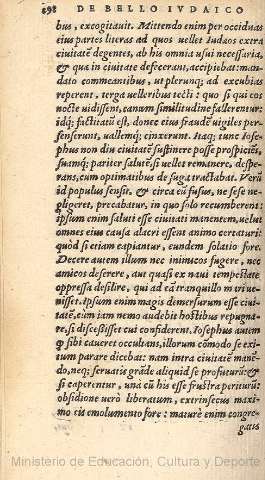 298 DE BELLO IVDAICO
bus, excogitauit. Mittendo enim per occiduas
eius partes literas ad quos uellet Iudæos extra
ciuitatẽ degentes, ab his omnia usui necessaria,
& quæ in ciuitate defecerant, accipiebat: man-
dato commeantibus, ut plerunq; ad excubias
reperent, terga uelleribus tecti: quo si qui eos
nocte uidissent, canum similitudine fallerentur:
idq; factitatũ est, donec eius fraudẽ uigiles per-
senserunt, uallemq; cinxerunt. Itaq; tunc Iose-
phus non diu ciuitatẽ sustinere posse prospiciẽs,
suamq; pariter salutẽ, si uellet remanere, despe-
rans, cum optimatibus de fuga tractabat. Verũ
id populus sensit, & circa eũ fusus, ne sese ne-
gligeret, precabatur, in quo solo recumberent:
ipsum enim saluti esse ciuitati manentem, uelut
omnes eius causa alacri essent animo certaturi:
quòd si etiam capiantur, eundem solatio fore.
Decere autem illum nec inimicos fugere, nec
amicos deserere, aut quasi ex naui tempestate
oppressa desilire, qui ad eã tranquillo mari uen-
isset. Ipsum enim magis demersurum esse ciui-
tatẽ, cùm iam nemo audebit hostibus repugna-
re, si discessisset cui confiderent. Iosephus autem
& sibi caueret occultans, illorum cõmodo se exi-
tum parare dicebat: nam intra ciuitatẽ manẽ-
do, neq; seruatis grãde aliquid se profuturũ: &
si caperentur, una cũ his esse frustra periturũ:
obsidione uerò liberatum, extrinsecus maxi-
mo eis emolumento fore: maturè enim congre-
gatis
Ministerio de Educación, Cultura y Deporte